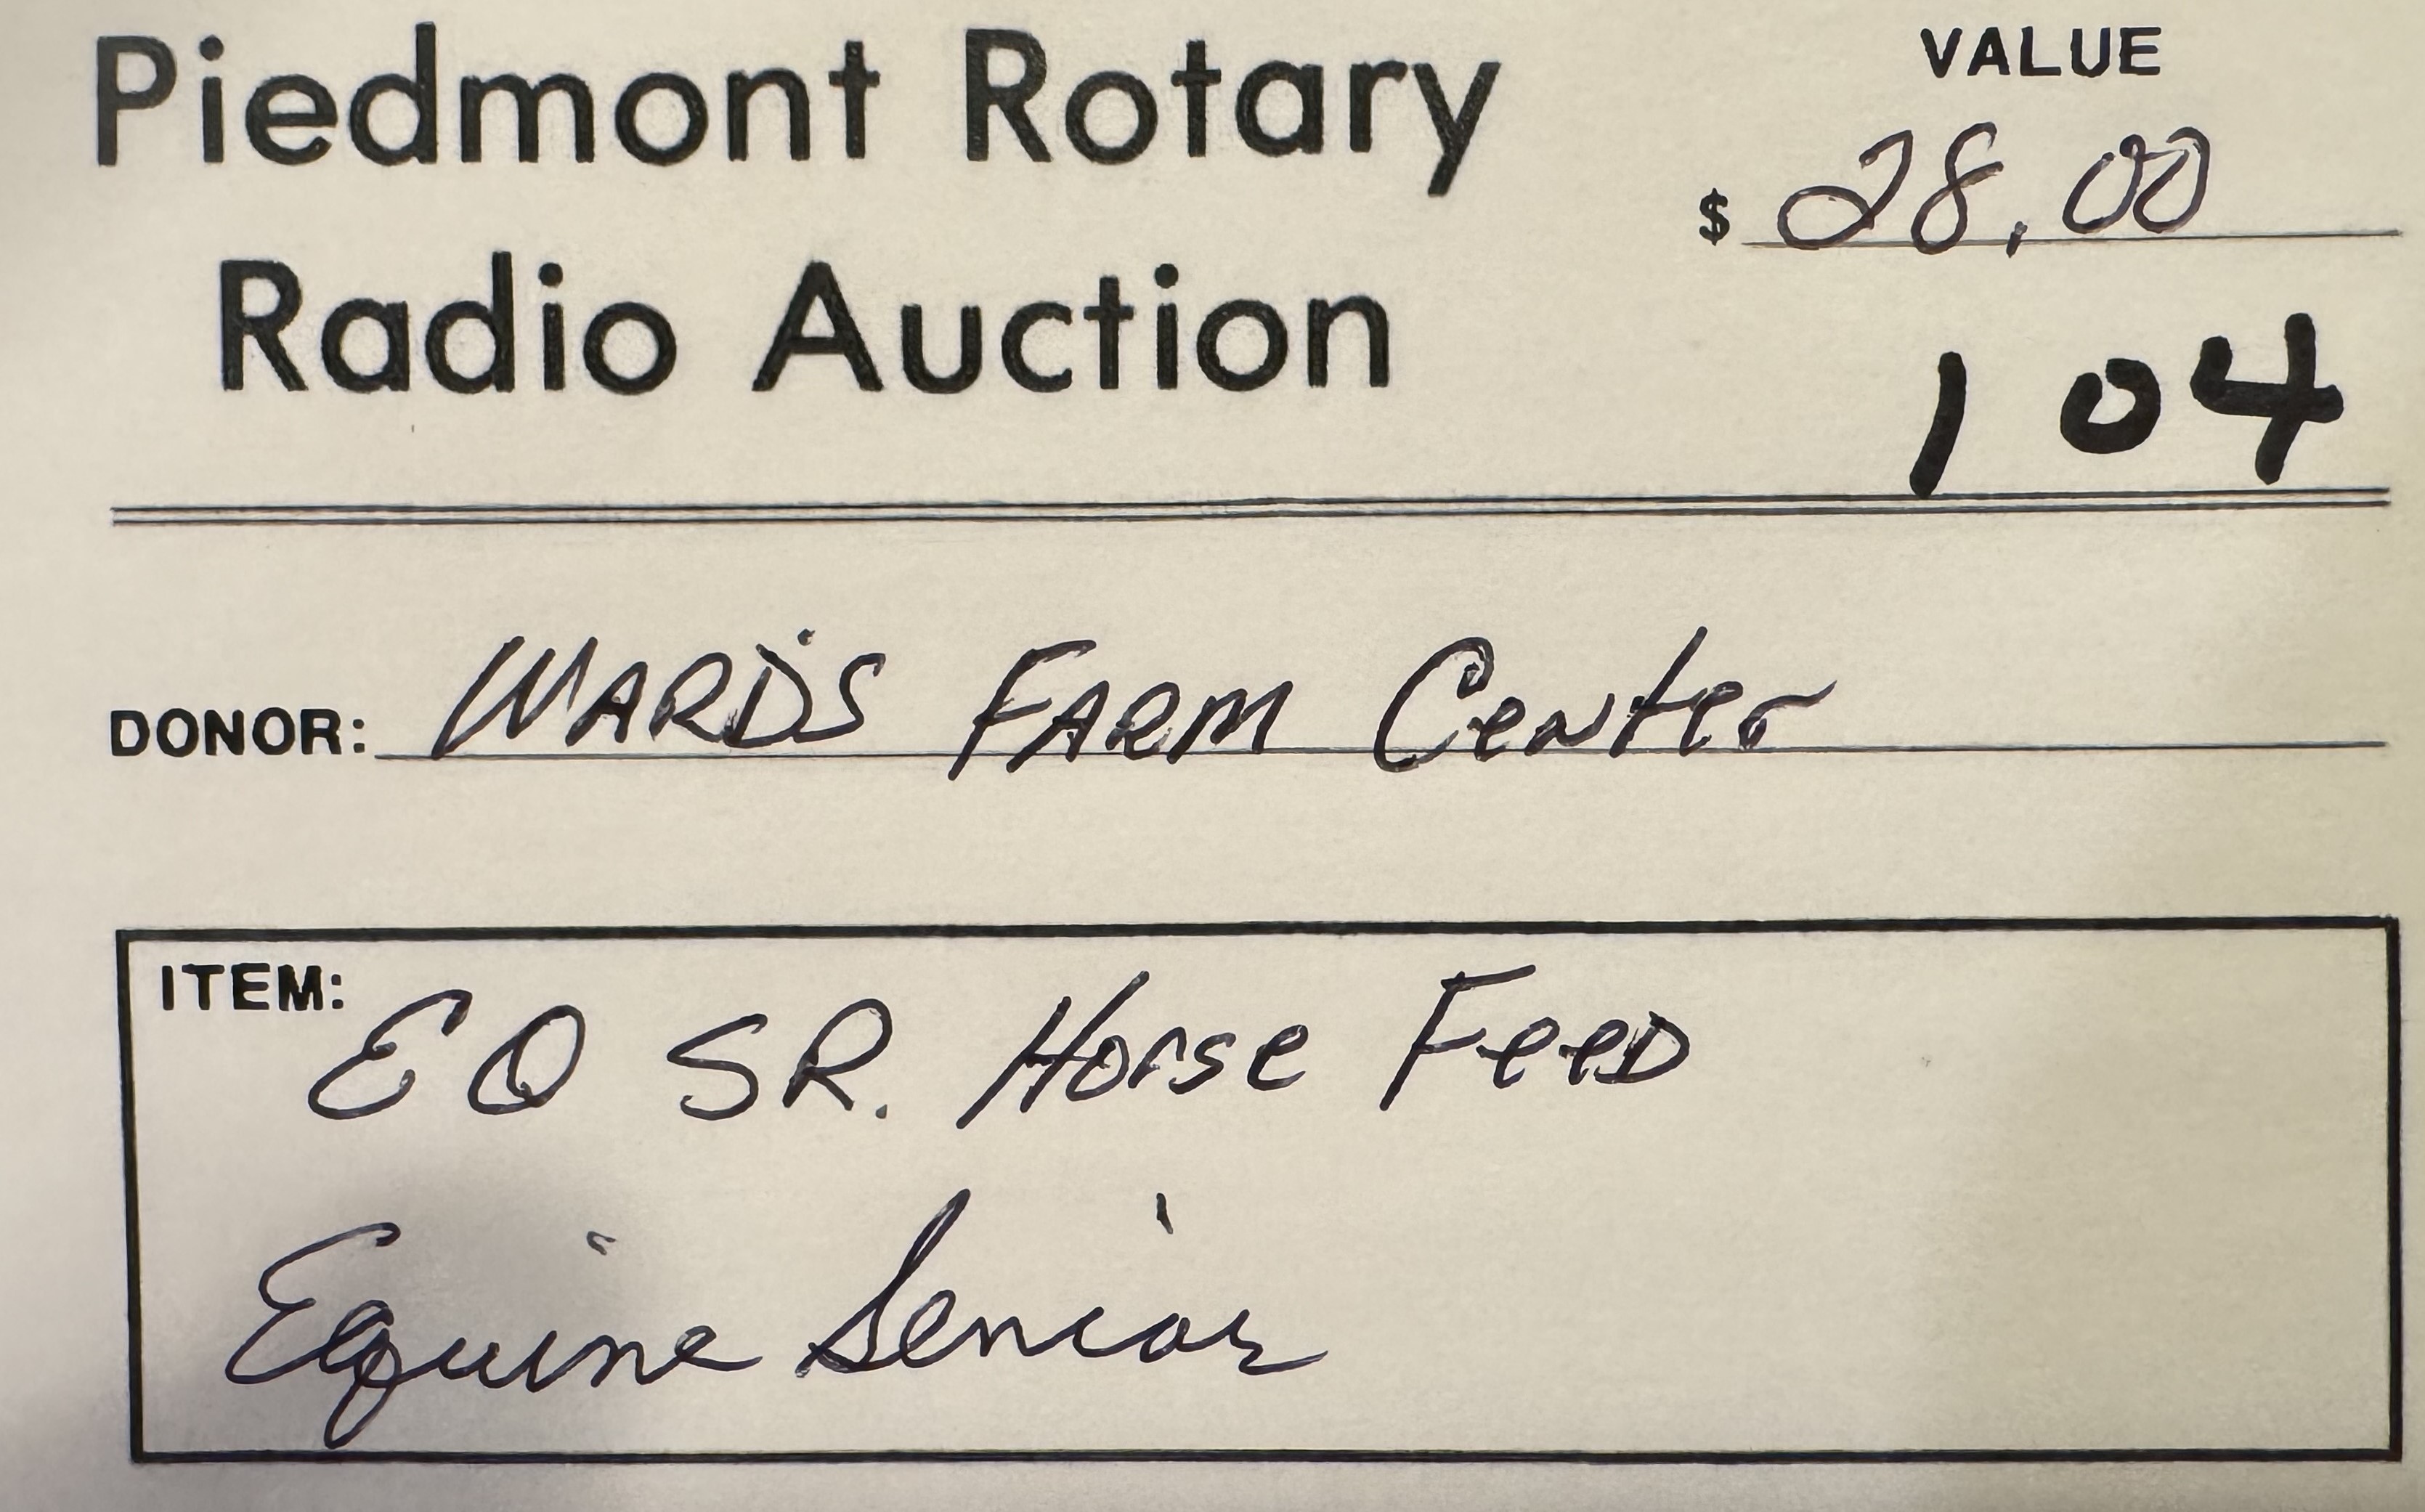 Piedmont Rotary
Radio Auction
VALUE
$ 28.00
104
DONOR: WARD'S FARM Center
ITEM: EQ SR. Horse FeeD
Equine Senior